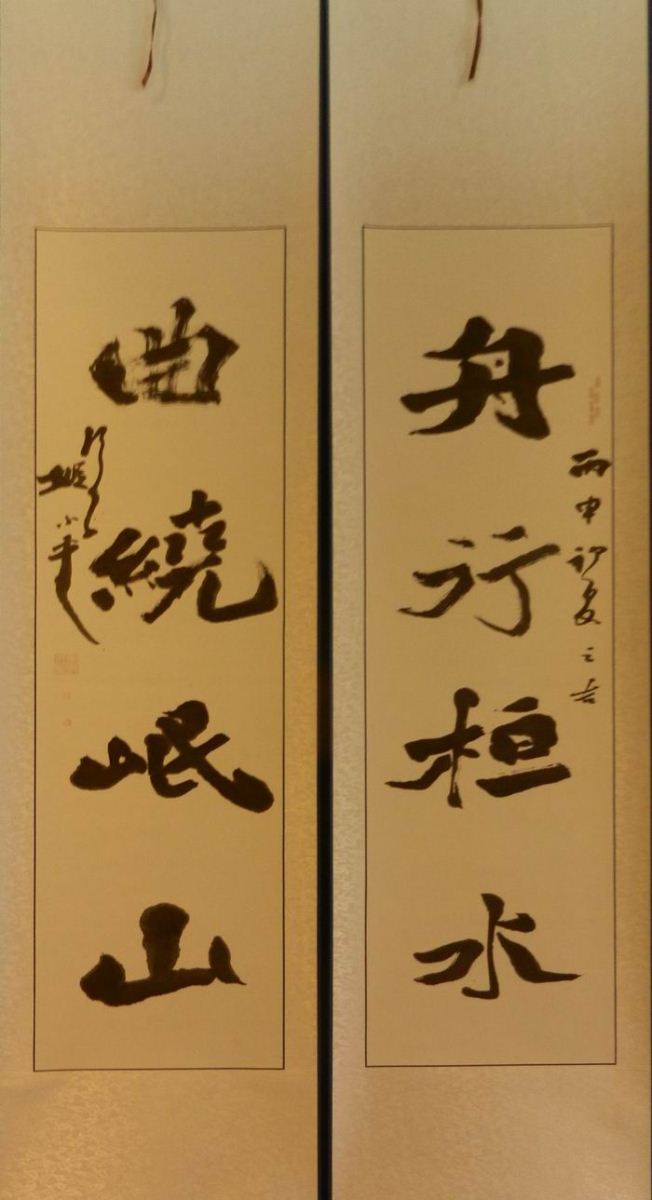 舟行桓水
丙申初夏之吉
曲繞岷山
小平